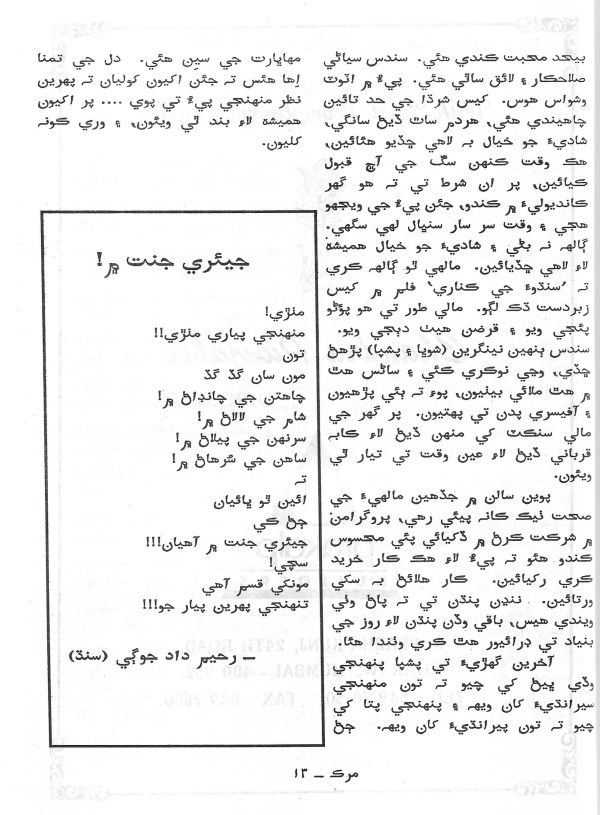 بيحد محبت ڪندي هئي. سندس سياڻي
صلاحڪار ۽ لائق ساٿي هئي. پيءُ ۾ اٽوٽ
وشواس هوس. ڪيس شرڌا جي حد تائين
چاهيندي هئي، هردم ساٿ ڏيڻ سانگي،
شاديءَ جو خيال به لاهي ڇڏيو هئائين،
هڪ وقت ڪنهن سڱ جي آڇ قبول
ڪيائين، پر ان شرط تي ته هو گهر
ڪانديوليءَ ۾ ڪندو، جئن پيءُ جي ويجهو
هجي ۽ وقت سر سار سنڀال لهي سگهي.
ڳالهه نه بڻي ۽ شاديءَ جو خيال هميشه
لاءِ لاهي ڇڏيائين. مالهي ٿو ڳالهه ڪري
ته ’سنڌوءَ جي ڪناري‘ فلم ۾ کيس
زبردست ڌڪ لڳو. مالي طور تي هو پوئتي
پئجي ويو ۽ قرضن هيٺ دٻجي ويو.
سندس ٻنهين نينگرين (شوڀا ۽ پشپا) پڙهڻ
ڇڏي، وڃي نوڪري ڪئي ۽ ساڻس هٿ
۾ هٿ ملائي بيٺيون، پوءِ ته ٻئي پڙهيون
۽ آفيسري پدن تي پهتيون. پر گهر جي
مالي سنڪٽ کي منهن ڏيڻ لاءِ ڪابه
قرباني ڏيڻ لاءِ عين وقت تي تيار ٿي
ويئون.
پوين سالن ۾ جڏهين مالهيءَ جي
صحت ٺيڪ ڪانه پيئي رهي، پروگرامن
۾ شرڪت ڪرڻ ۾ ڏکيائي پئي محسوس
ڪندو هئو ته پيءُ لاءِ هڪ ڪار خريد
ڪري رکيائين. ڪار هلائڻ به سکي
ورتائين. ننڍن پنڌن تي ته پاڻ وٺي
ويندي هيس، باقي وڏن پنڌن لاءِ روز جي
بنياد تي ڊرائيور هٿ ڪري وٺندا هئا.
آخرين گهڙيءَ تي پشپا پنهنجي
وڏي ڀيڻ کي چيو ته تون منهنجي
سيرانديءَ کان ويهه ۽ پنهنجي پتا کي
چيو ته تون پيرانديءَ کان ويهه. ڄڻ
مهاڀارت جي سين هئي. دل جي تمنا
اها هئس ته جئن اکيون کوليان ته پهرين
نظر منهنجي پيءُ تي پوي .... پر اکيون
هميشه لاءِ بند ٿي ويئون، ۽ وري ڪونه
کليون.
جيئري جنت ۾!
مٺڙي!
منهنجي پياري مٺڙي!!
تون
مون سان گڏ گڏ
چاهتن جي چانڊاڻ ۾!
شام جي لالاڻ ۾!
سرنهن جي پيلاڻ ۾!
ساهن جي سُرهاڻ ۾!
ته
ائين ٿو ڀائيان
ڄڻ ڪي
جيئري جنت ۾ آهيان!!!
سچي!
مونکي قسم آهي
تنهنجي پهرين پيار جو!!!
ــ رحيم داد جوڳي (سنڌ)
مرڪ ــ ١٣